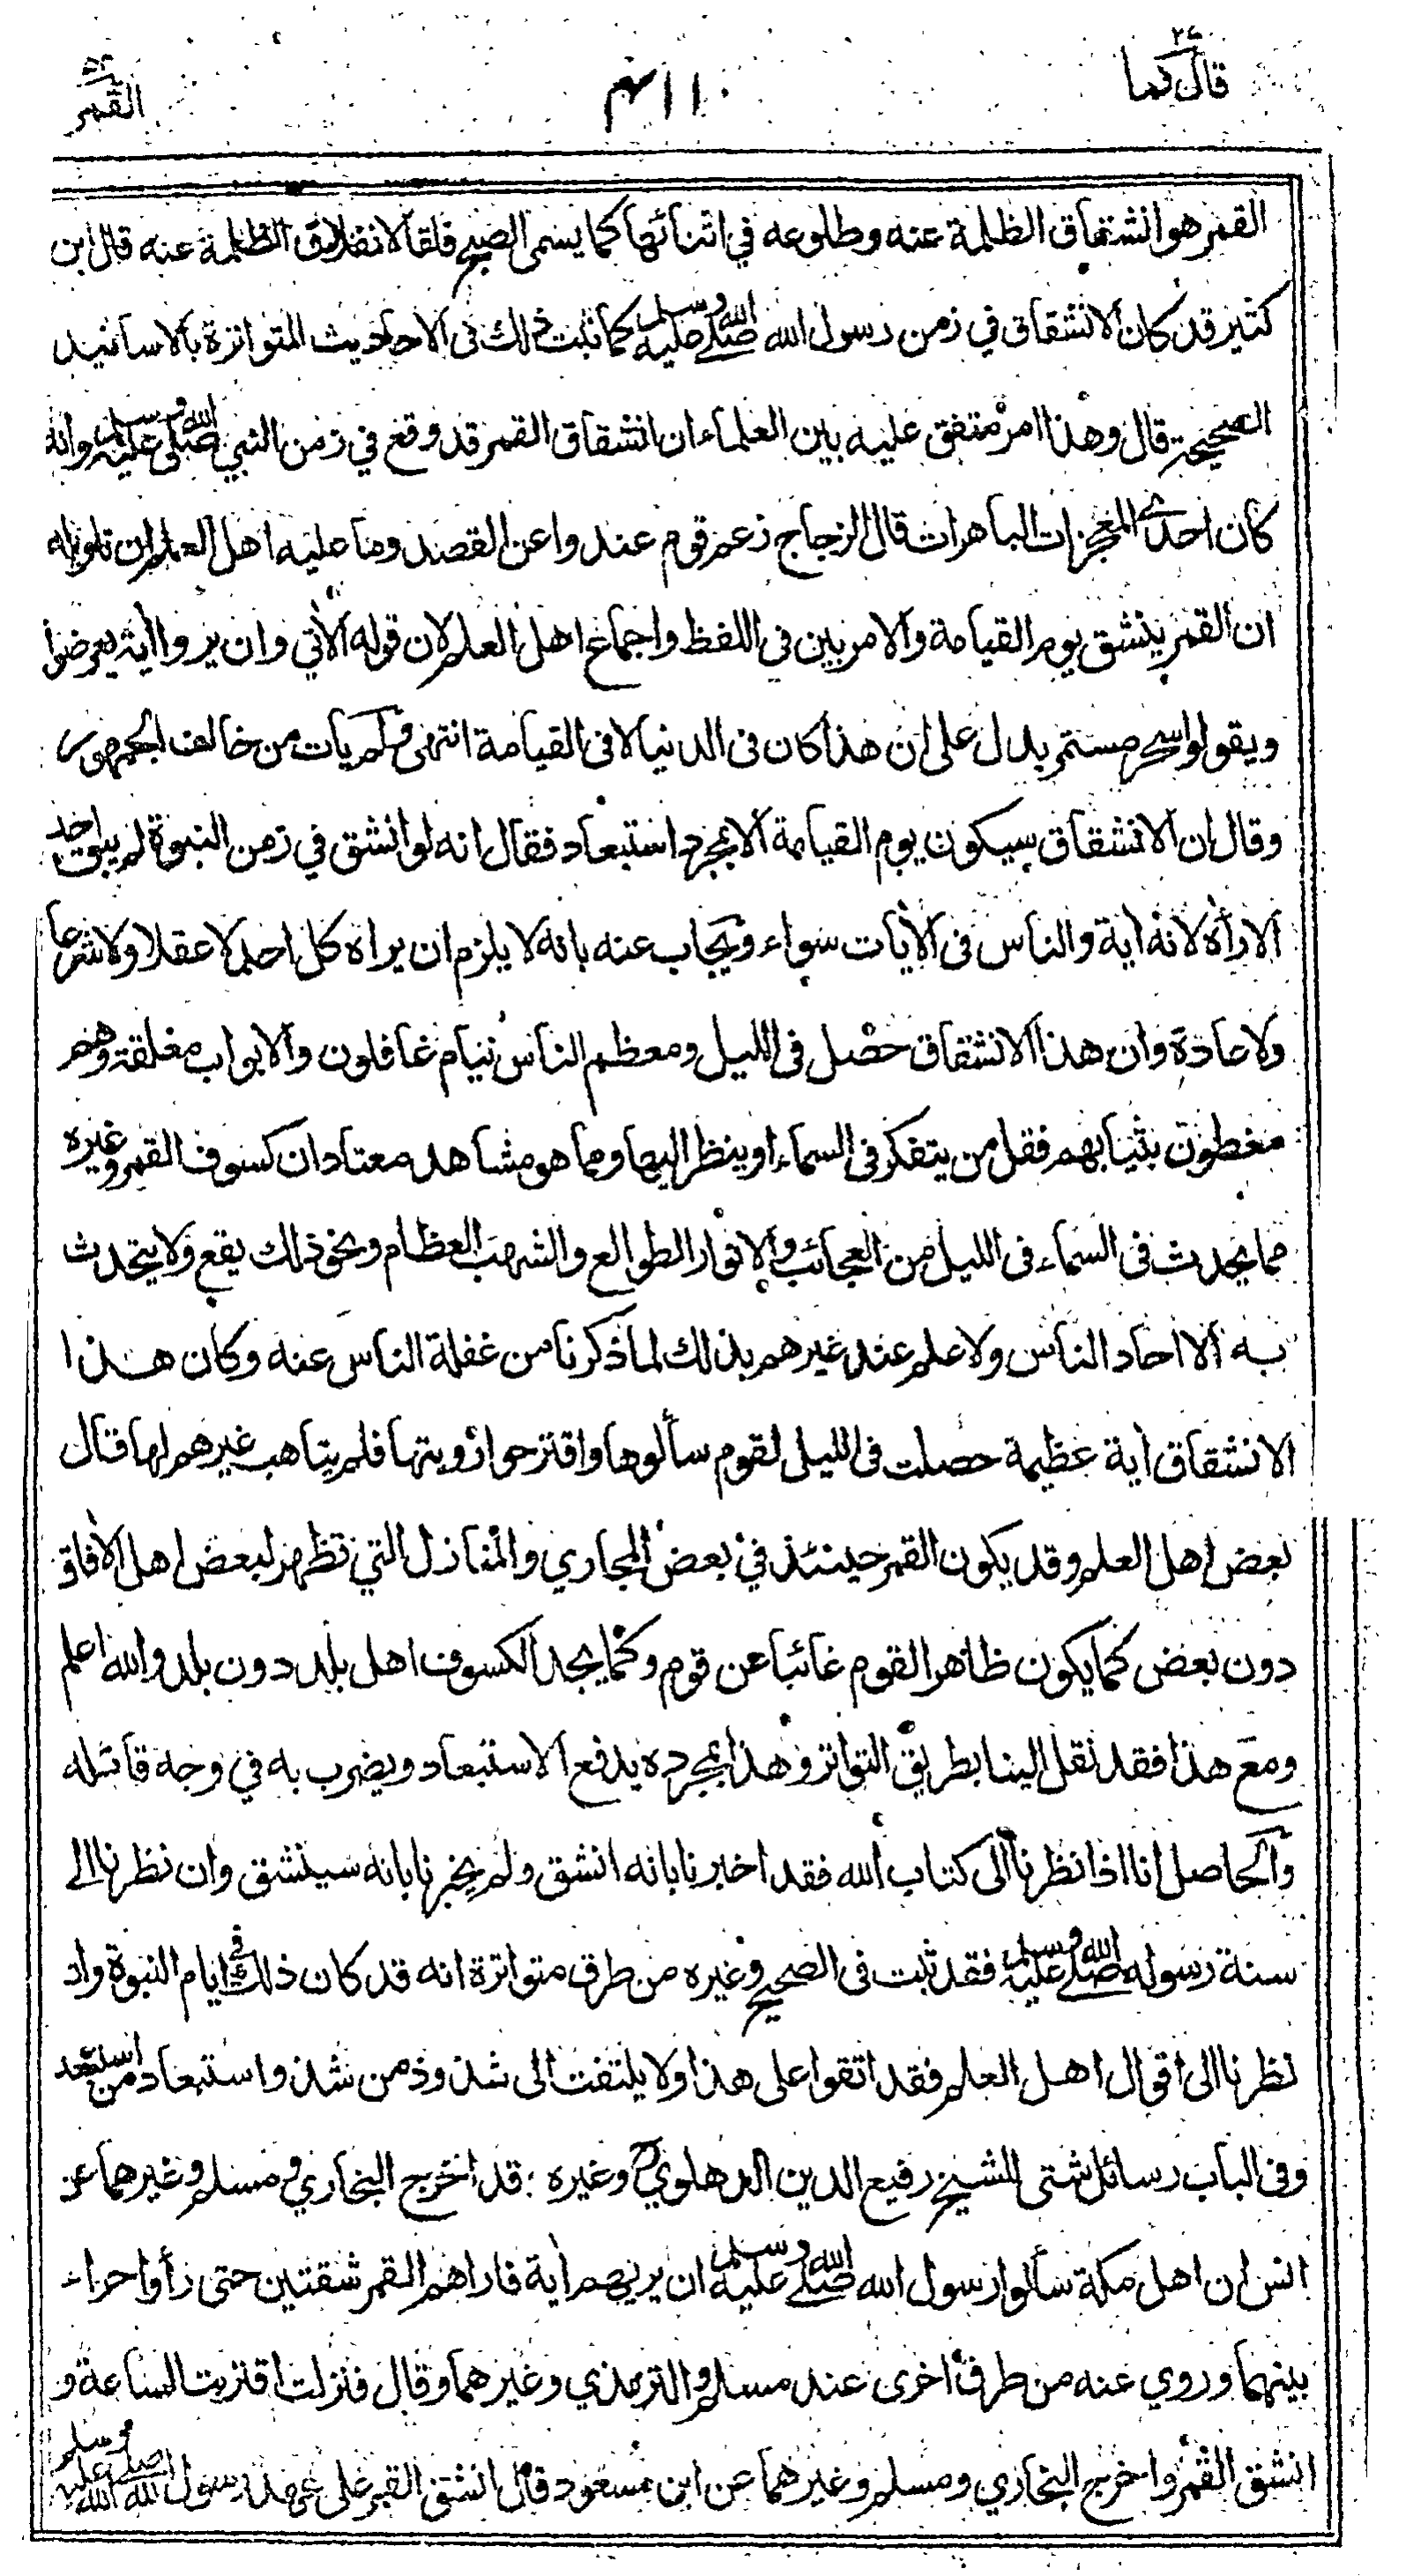 قال فما ٢٧
٣١١
القمر ٥٤
القمر هو انشقاق الظلمة عنه وطلوعه في اثنائها كما يسمى الصبح فلقا لانفلاق الظلمة عنه قال ابن
كثير قد كان الانشقاق في زمن رسول الله صلى الله عليه وسلم كما ثبت ذلك فى الاحاديث المتواترة بالاسانيد
الصحيحة قال وهذا امر متفق عليه بين العلماء ان انشقاق القمر قد وقع في زمن النبي صلى الله عليه وسلم وانه
كان احدى المعجزات الباهرات قال الزجاج زعم قوم عندوا عن القصد وما عليه اهل العلم ان تاويله
ان القمر ينشق يوم القيامة والامر بين فى اللفظ واجماع اهل العلم لان قوله الأتي وان يروا أية يعرضوا
ويقولوا سحر مستمر يدل على ان هذا كان فى الدنيا لا فى القيامة انتهى ولم يات من خالف الجمهور
وقال ان الانشقاق سيكون يوم القيامة الا بمجرد استبعاد فقال انه لو انشق في زمن النبوة لم يبق احد
الا رأه لانه اية والناس فى الأيات سواء ويجاب عنه بانه لا يلزم ان يراه كل احد لا عقلا ولا شرعا
ولا عادة وان هذا الانشقاق حصل فى الليل ومعظم الناس نيام غافلون والابواب مغلقة وهم
مغطون بثيابهم فقل من يتفكر فى السماء او ينظر اليها ومما هو مشاهد معتاد ان كسوف القمر وغيره
مما يحدث فى السماء فى الليل من العجائب والانوار الطوالع والشهب العظام ونحو ذلك يقع ولا يتحدث
به الا احاد الناس ولا علم عند غيرهم بذلك لما ذكرنا من غفلة الناس عنه وكان هذا
الانشقاق اية عظيمة حصلت فى الليل لقوم سألوها واقترحوا رؤيتها فلم يتاهب غيرهم لها قال
بعض اهل العلم وقد يكون القمر حينئذ في بعض المجاري والمنازل التي تظهر لبعض اهل الأفاق
دون بعض كما يكون ظاهرا لقوم غائبا عن قوم وكما يجد الكسوف اهل بلد دون بلد والله اعلم
ومع هذا فقد نقل الينا بطريق التواتر وهذا بمجرده يدفع الاستبعاد ويضرب به في وجه قائله
والحاصل انا اذا نظرنا الى كتاب الله فقد اخبرنا بانه انشق ولم يخبرنا بانه سينشق وان نظرنا الى
سنة رسوله صلى الله عليه وسلم فقد ثبت فى الصحيح وغيره من طرق متواترة انه قد كان ذلك في ايام النبوة وان
نظرنا الى اقوال اهل العلم فقد اتقوا على هذا ولا يلتفت الى شذوذ من شذ واستبعاد من استبعد
وفى الباب رسائل شتى للشيخ رفيع الدين الدهلوي وغيره ؛ قد اخرج البخاري ومسلم وغيرهما عن
انس ان اهل مكة سألوا رسول الله صلى الله عليه وسلم ان يريهم أية فاراهم القمر شقتين حتى رأوا حراء
بينهما وروي عنه من طرق اخرى عند مسلم والترمذي وغيرهما وقال فنزلت اقتربت الساعة و
انشق القمر واخرج البخاري ومسلم وغيرهما عن ابن مسعود قال انشق القمر على عهد رسول الله صلى الله عليه وسلم